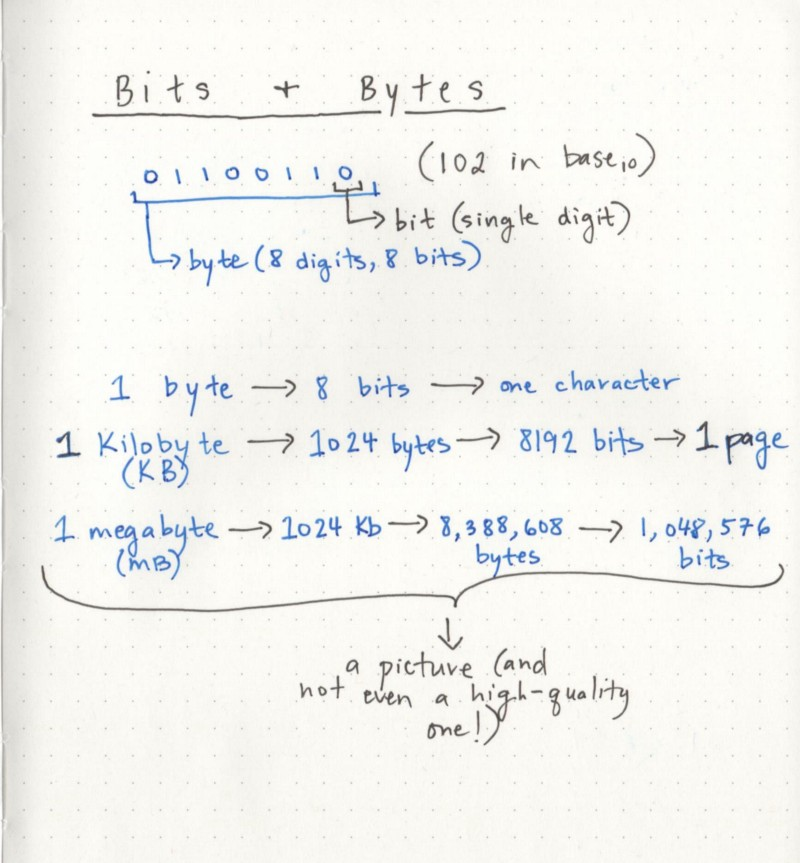 Bits + Bytes
01100110 (102 in base10)
bit (single digit)
byte (8 digits, 8 bits)
1 byte → 8 bits → one character
1 Kilobyte → 1024 bytes → 8192 bits → 1 page
(KB)
1 megabyte → 1024 Kb → 8,388,608 → 1,048,576
(MB) bytes bits
↓
a picture (and
not even a high-quality
one!)